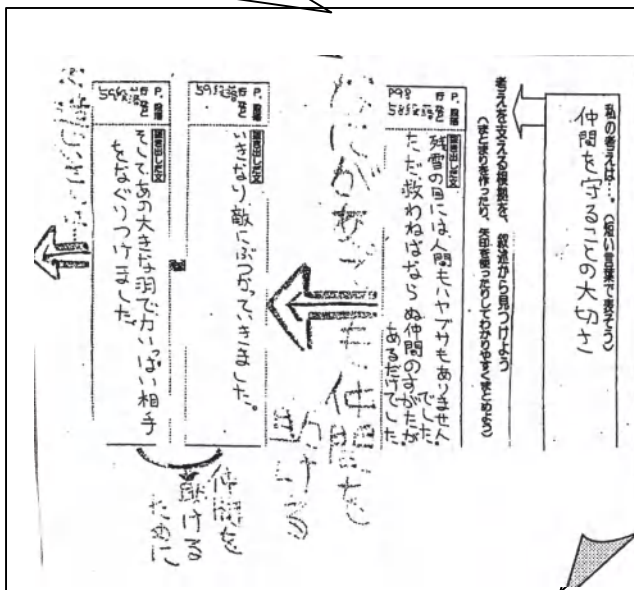 私の考えは…。〈短い言葉で表そう〉
仲間を守ることの大切さ
考えを支える根拠を、叙述から見つけよう
〈まとまりを作ったり、矢印を使ったりしてわかりやすくまとめよう〉
P、段落
行など
書き出した文
残雪の目には、人間もハヤブサもありません
でした。
ただ、救わねばならぬ仲間のすがたが
あるだけでした。
仲間を
助ける
P、段落
行など
書き出した文
いきなり敵にぶつかっていきました。
P、段落
行など
書き出した文
そしてあの大きな羽で力いっぱい相手
をなぐりつけました。
仲間を
助ける
ために